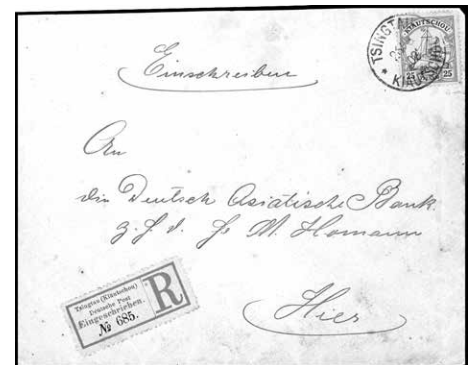 Einschreiben
TSINGTAU
KIAUTSCHOU
KIAUTSCHOU
25 25
An
die Deutsch Asiatische Bank.
z. f. d. M. Homann
Hier
Tsingtau (Kiautschou)
Deutsche Post
Eingeschrieben.
№ 685.
R